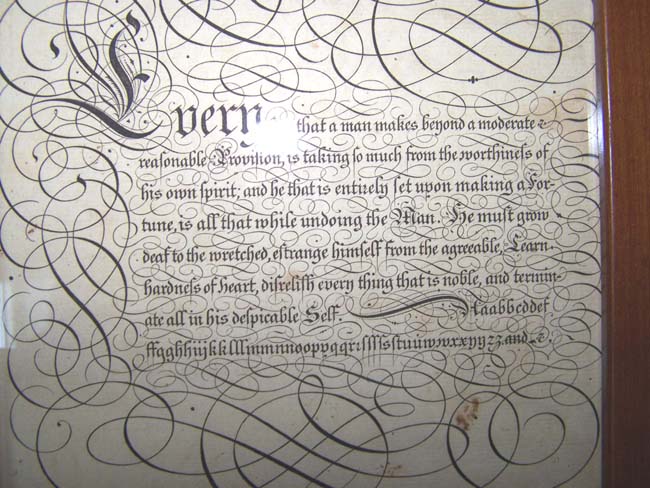 Every that a man makes beyond a moderate &
reasonable Proviſion, is taking ſo much from the worthineſs of
his own ſpirit; and he that is entirely ſet upon making a For-
tune, is all that while undoing the Man. He muſt grow
deaf to the wretched, eſtrange himſelf from the agreeable, Learn
hardneſs of Heart, diſreliſh every thing that is noble, and termin-
ate all in his deſpicable Self. Aaabbcddef
ffgghhiijkklllmmnnooppqqrrſſſſsstuuwwxxyyzz and &.